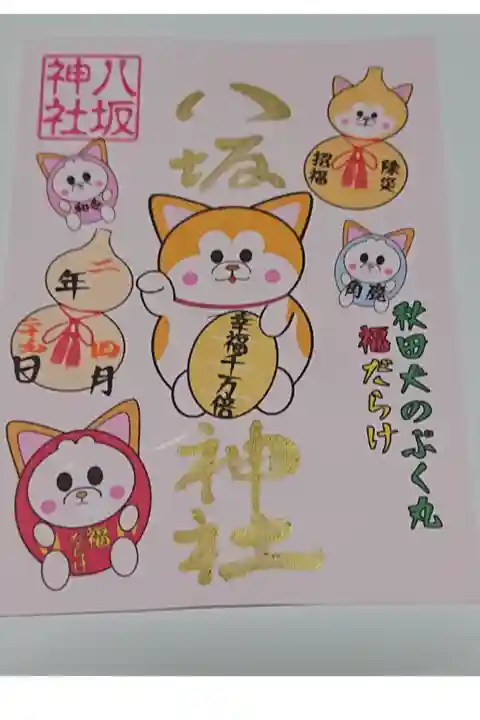 八坂
神社
八坂
神社
除災
招福
角鹿
幸福千万倍
秋田犬のぶく丸
福だらけ
二
年
四月
二十九
日
福
だらけ